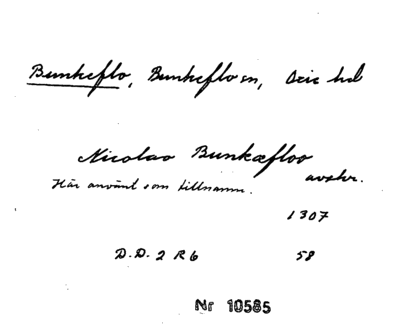 Bunkeflo, Bunkeflo sn, Oxie hd
Nicolao Bunkæfloo
avskr.
Här använt som tillnamn.
1307
D.D. 2 R 6 58
Nr 10585